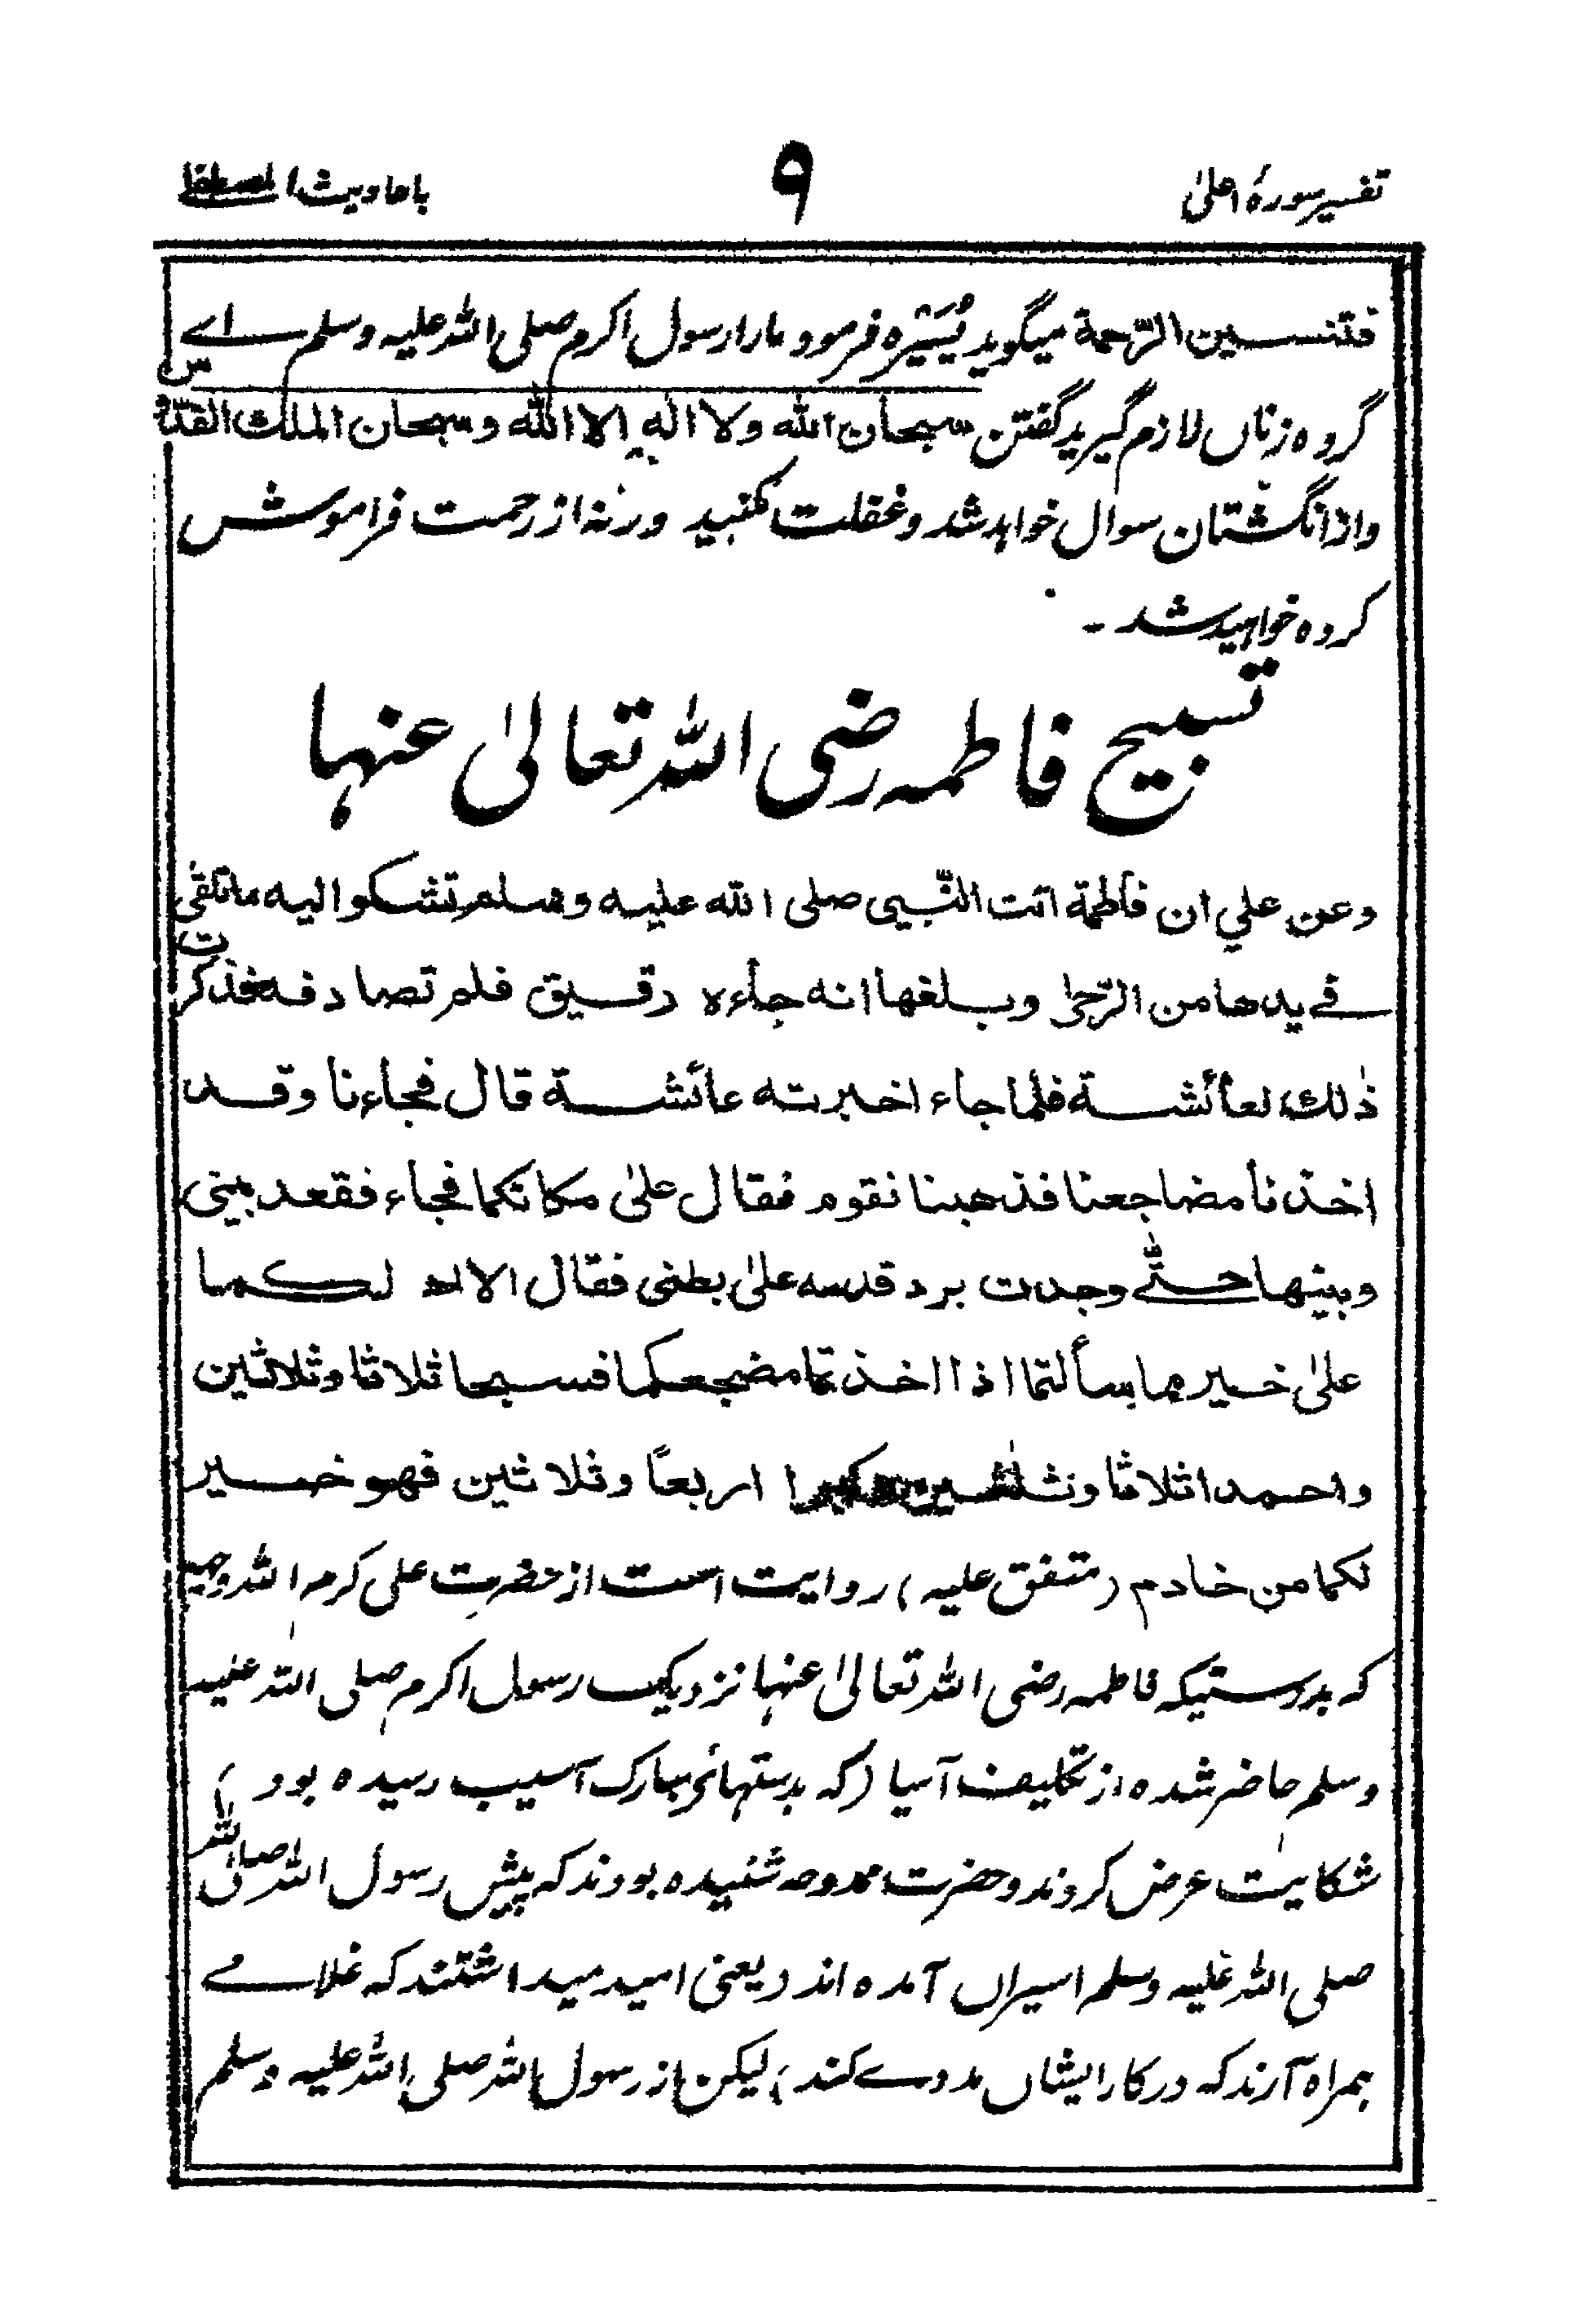 تفسیر سورۂ اعلیٰ
۹
باحادیث المصطفیٰ
فتنسین الرّحمة میگوید یُسَیْرہ فرمود مارا رسول اکرم صلی اللہ علیہ وسلم اے
گروہ زناں لازم گیرید گفتن سبحان اللہ ولا الٰہ الا اللہ وسبحان الملک القدّوس
واز انگشتان سوال خواہد شد وغفلت مکنید ورنہ از رحمت فراموش
کردہ خواہید شد ۔
تسبیح فاطمہ رضی اللہ تعالیٰ عنہا
وعن علي ان فاطمة اتت النّبی صلی اللہ علیہ وسلم تشکوا الیہ ماتلقی
فے یدھا من الرّحیٰ وبلغھا انه جاءہ رقیق فلم تصادفه فذکرت
ذٰلك لعائشة فلما جاء اخبرته عائشة قال فجاءنا وقد
اخذنا مضاجعنا فذهبنا نقوم فقال علیٰ مکانکما فجاء فقعد بینی
وبینھا حتّٰے وجدت برد قدمه علیٰ بطنی فقال الا ادلکما
علیٰ خیر مما سألتما اذا اخذتما مضجعکما فسبحا ثلاثا وثلاثین
واحمدا ثلاثا وثلٰثین وکبرا اربعًا وثلاثین فھو خیر
لکما من خادم (متفق علیہ) روایت است از حضرت علی کرم اللہ وجہہ
کہ بدرستیکہ فاطمہ رضی اللہ تعالیٰ عنہا نزدیک رسول اکرم صلی اللہ علیہ
وسلم حاضر شدہ از تکلیف آسیا (کہ بدستہائے مبارک آسیب رسیدہ بود)
شکایت عرض کردند وحضرت ممدوحہ شنیدہ بودند کہ پیش رسول اللہ صلی اللہ
صلی اللہ علیہ وسلم اسیراں آمدہ اند (یعنی امید میداشتند کہ غلامے
ہمراہ آرند کہ در کار ایشاں مددے کند) لیکن از رسول اللہ صلی اللہ علیہ وسلم